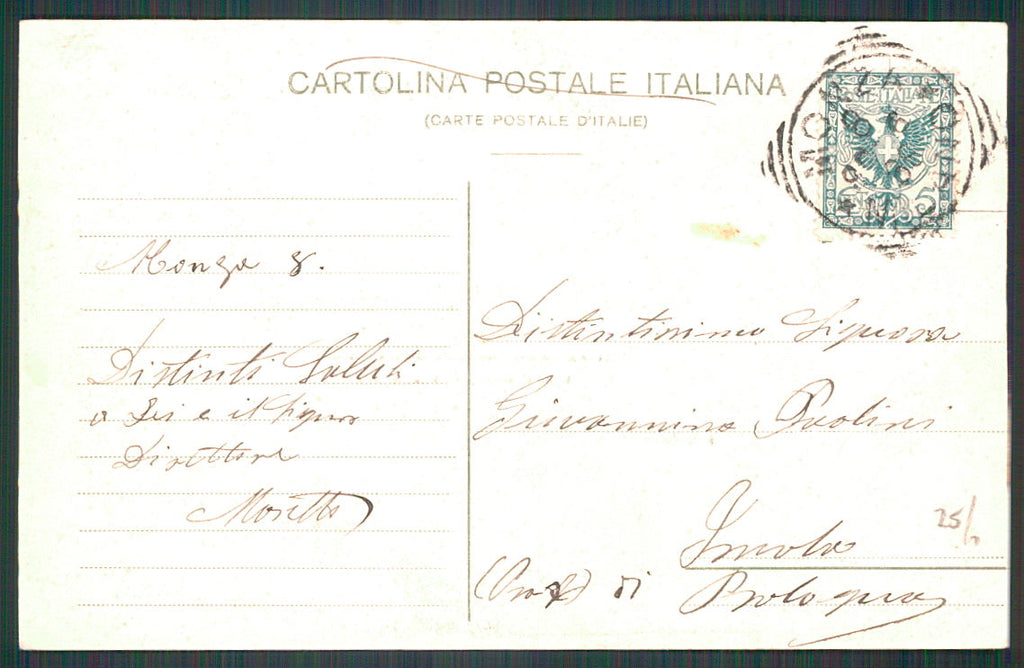 CARTOLINA POSTALE ITALIANA
(CARTE POSTALE D'ITALIE)
POSTE ITALIANE
5
MONZA
Monza 8.
Distinti Saluti
a Lei e il Signor
Direttore
Moretti
Distintissima Signora
Giovannina Paolini
Imola
(Prov) di Bologna
25/